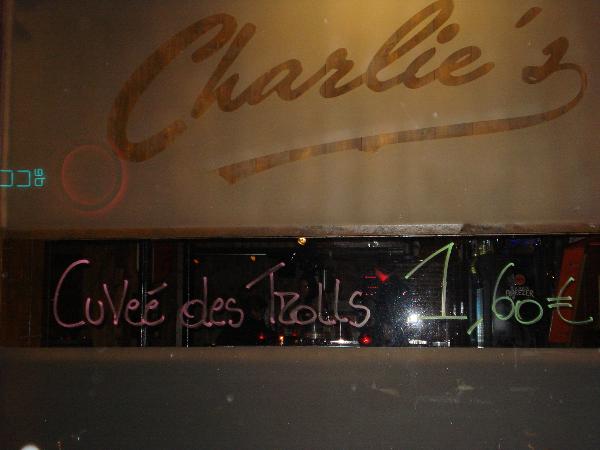 Charlie's
CuVeé des Trolls 1,60€